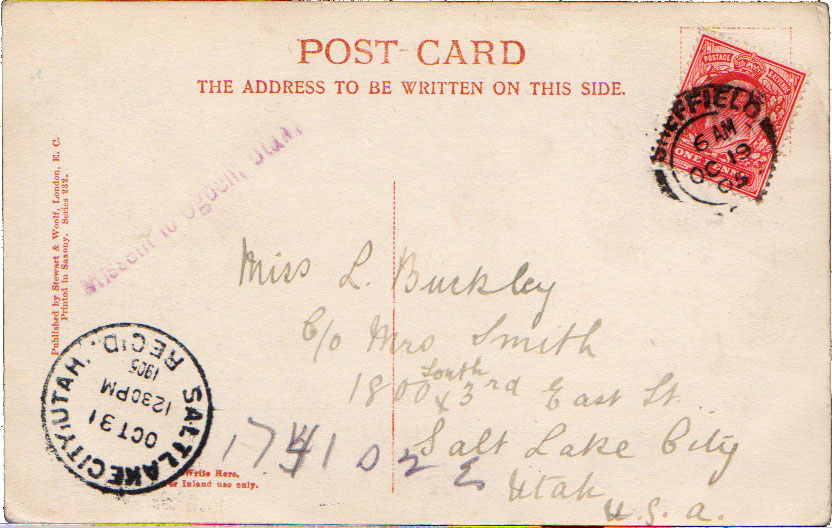 POST-CARD
THE ADDRESS TO BE WRITTEN ON THIS SIDE.
POSTAGE
ONE PENNY
SHEFFIELD
6 AM
OC 19
05
Missent to Ogden, Utah.
Published by Stewart & Woolf, London, E. C.
Printed in Saxony. Series 232.
Miss L. Buckley
C/o Mrs Smith
South
1800 x 3rd East St.
Salt Lake City
Utah
U.S.A.
SALT LAKE CITY, UTAH.
REC'D.
1905
1230 PM
OCT 31
Write Here,
or Inland use only.